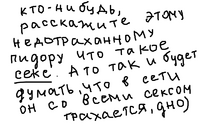 кто-нибудь,
расскажите этому
недотраханному
пидору что такое
секс. А то так и будет
думать, что в сети
он со всеми сексом
трахается, дно)